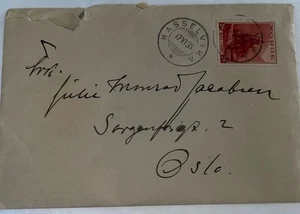 HASSELVIKA
17 VI 39
NORGE
Frk.
Julie Monrad Jacobsen
Sorgenfrigt. 2
Oslo.